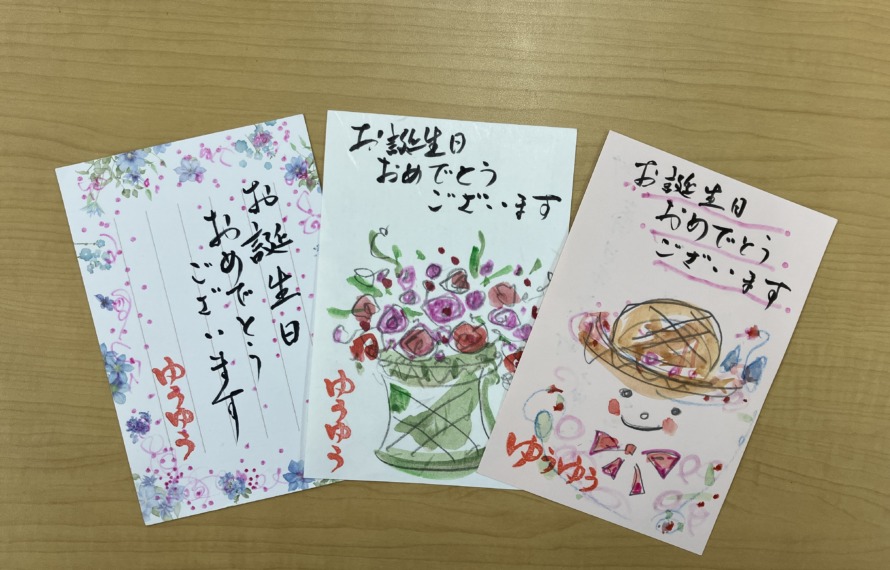 お誕生日
おめでとう
ございます
ゆうゆう
お誕生日
おめでとう
ございます
ゆうゆう
お誕生日
おめでとう
ございます
ゆうゆう